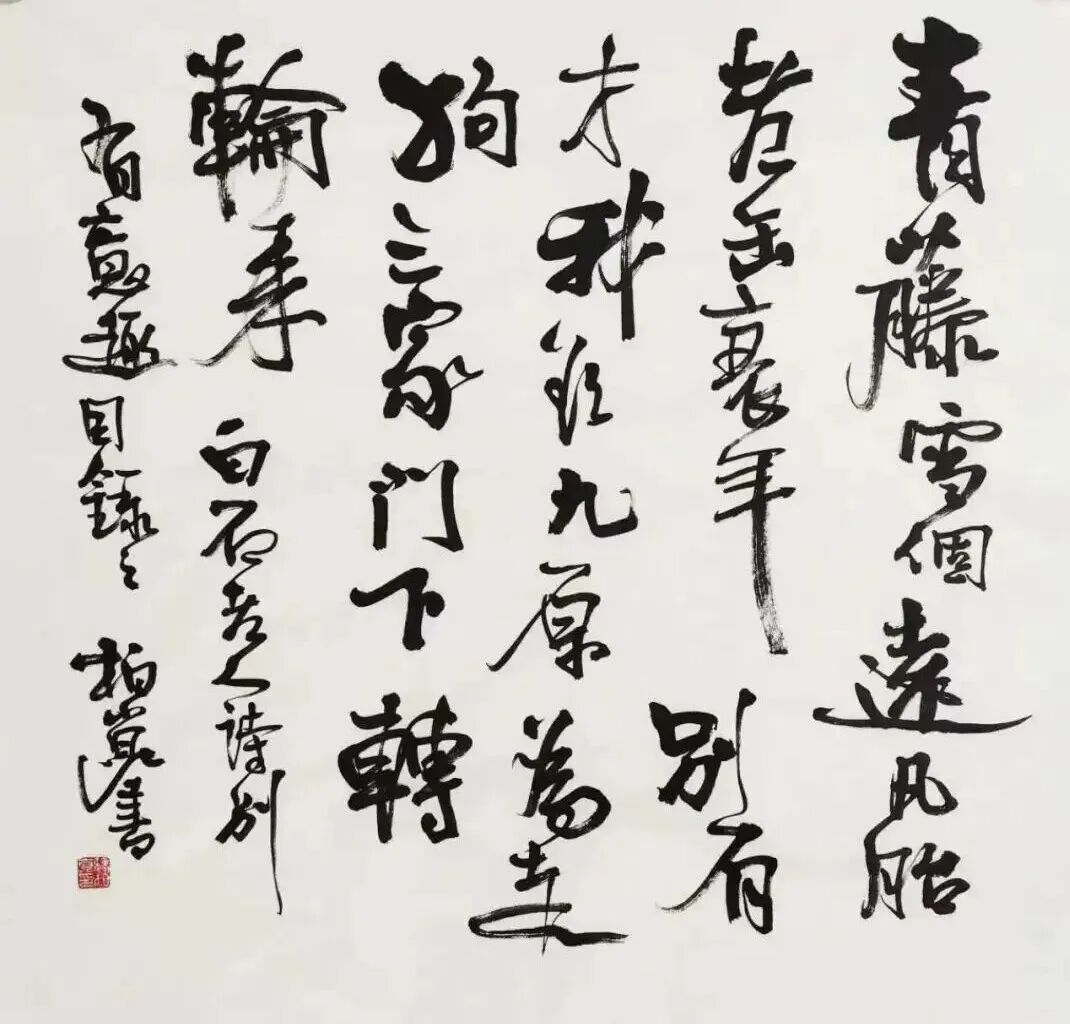 青藤雪個遠凡胎
老缶衰年別有
才我欲九原為走
狗三家門下轉
輪來 白石老人詩別
有意趣因錄之 柏書